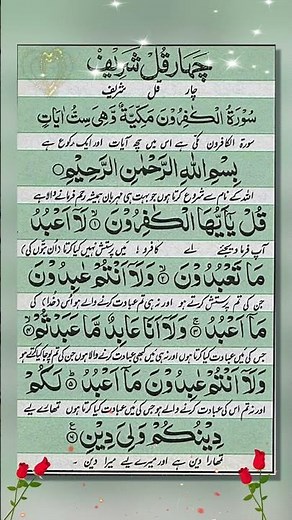 چہار قُلْ شریف
چار قل شریف
سُوْرَةُ الْكٰفِرُوْنَ مَكِّيَّةٌ وَّهِيَ سِتُّ اٰيَاتٍ
سورۃ الکافرون مکی ہے اس میں چھ آیات اور ایک رکوع ہے
بِسْمِ اللهِ الرَّحْمٰنِ الرَّحِيْمِ
اللہ کے نام سے شروع کرتا ہوں جو بہت ہی مہربان ہمیشہ رحم فرمانے والا ہے
قُلْ يٰۤاَيُّهَا الْكٰفِرُوْنَ ۙ۱ لَاۤ اَعْبُدُ
آپ فرما دیجئے اے کافرو! میں پرستش نہیں کیا کرتا (ان بتوں کی)
مَا تَعْبُدُوْنَ ۙ۲ وَلَاۤ اَنْتُمْ عٰبِدُوْنَ
جن کی تم پرستش کرتے ہو اور نہ ہی تم عبادت کرنے والے ہو اس (خدا) کی
مَاۤ اَعْبُدُ ۚ۳ وَلَاۤ اَنَا عَابِدٌ مَّا عَبَدْتُّمْ ۙ۴
جس کی میں عبادت کیا کرتا ہوں اور نہ ہی میں کبھی عبادت کرنے والا ہوں جن کی تم پوجا کیا کرتے ہو
وَلَاۤ اَنْتُمْ عٰبِدُوْنَ مَاۤ اَعْبُدُ ؕ۵ لَكُمْ
اور نہ تم اس کی عبادت کرنے والے ہو جس کی میں عبادت کیا کرتا ہوں تمھارے لیے
دِيْنُكُمْ وَلِيَ دِيْنِ ۶
تمھارا دین ہے اور میرے لیے میرا دین ۔